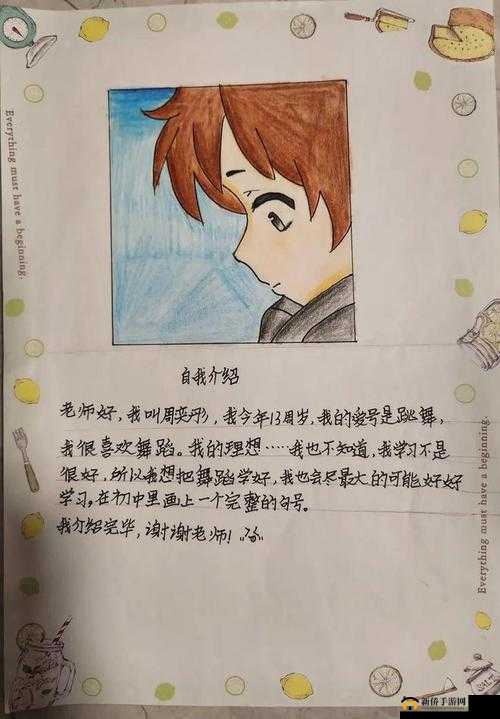 Everything must have a beginning.
自我介绍
老师好,我叫周奕彤,我今年13周岁,我的爱号是跳舞,
我很喜欢舞蹈。我的理想……我也不知道,我学习不是
很好,所以我想把舞蹈学好,我也会尽最大的可能好好
学习。在初中里画上一个完整的句号。
我介绍完毕,谢谢老师!
Everything must have a beginning.
SALT
新侨手游网